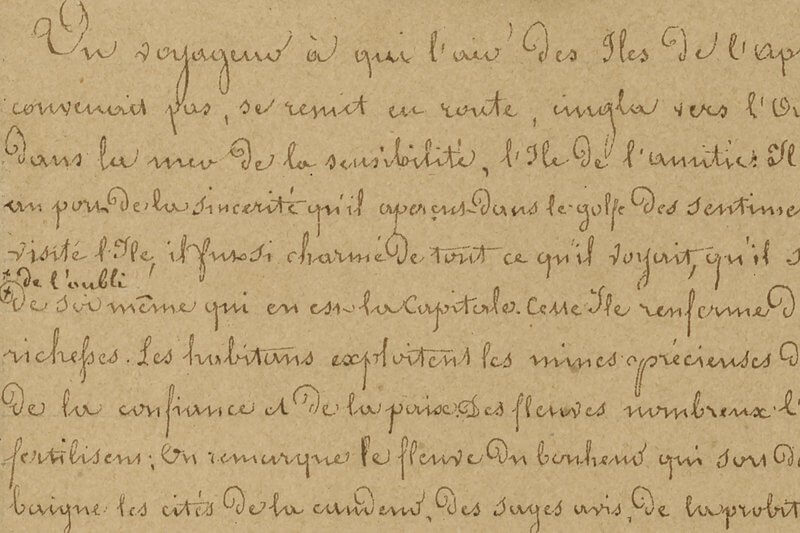 Un voyageur à qui l'air des Iles de l'ap
convenait pas, se remit en route, cingla vers l'Or
dans la mer de la sensibilité, l'Ile de l'amitié: Il
au port de la sincérité qu'il aperçut dans le golfe des sentime
visité l'Ile, il fut si charmé de tout ce qu'il voyait, qu'il s
de l'oubli
de soi même qui en est la Capitale. Cette Ile renferme d
richesses. Les habitans exploitent les mines précieuses d
de la confiance et de la paix. Des fleuves nombreux l'
fertilisent; On remarque le fleuve du bonheur qui sort d
baigne les cités de la candeur, des sages avis, de la probit